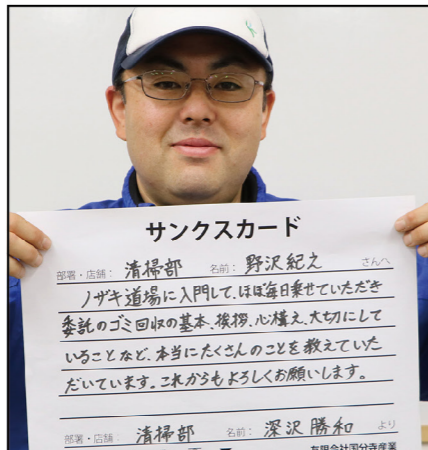 サンクスカード
部署・店舗: 清掃部 名前: 野沢紀之 さんへ
ノザキ道場に入門して、ほぼ毎日乗せていただき
委託のゴミ回収の基本、挨拶、心構え、大切にして
いることなど、本当にたくさんのことを教えていた
だいています。これからもよろしくお願いします。
部署・店舗: 清掃部 名前: 深沢勝和 より
有限会社国分寺産業